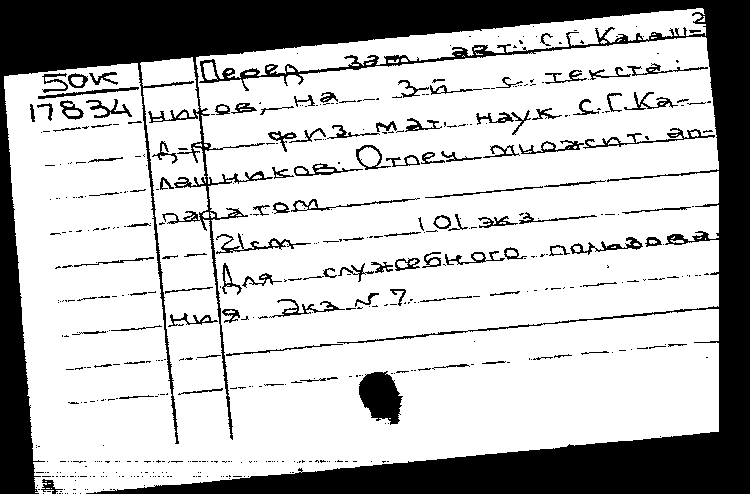 2
50К
17834
Перед заг. авт.: С.Г. Калаш=
ников; на 3-й с. текста:
д=р физ. мат. наук С.Г. Ка-
лашников. Отпеч. множит. ап=
паратом
21см 101 экз.
Для служебного пользова-
ния. Экз № 7.